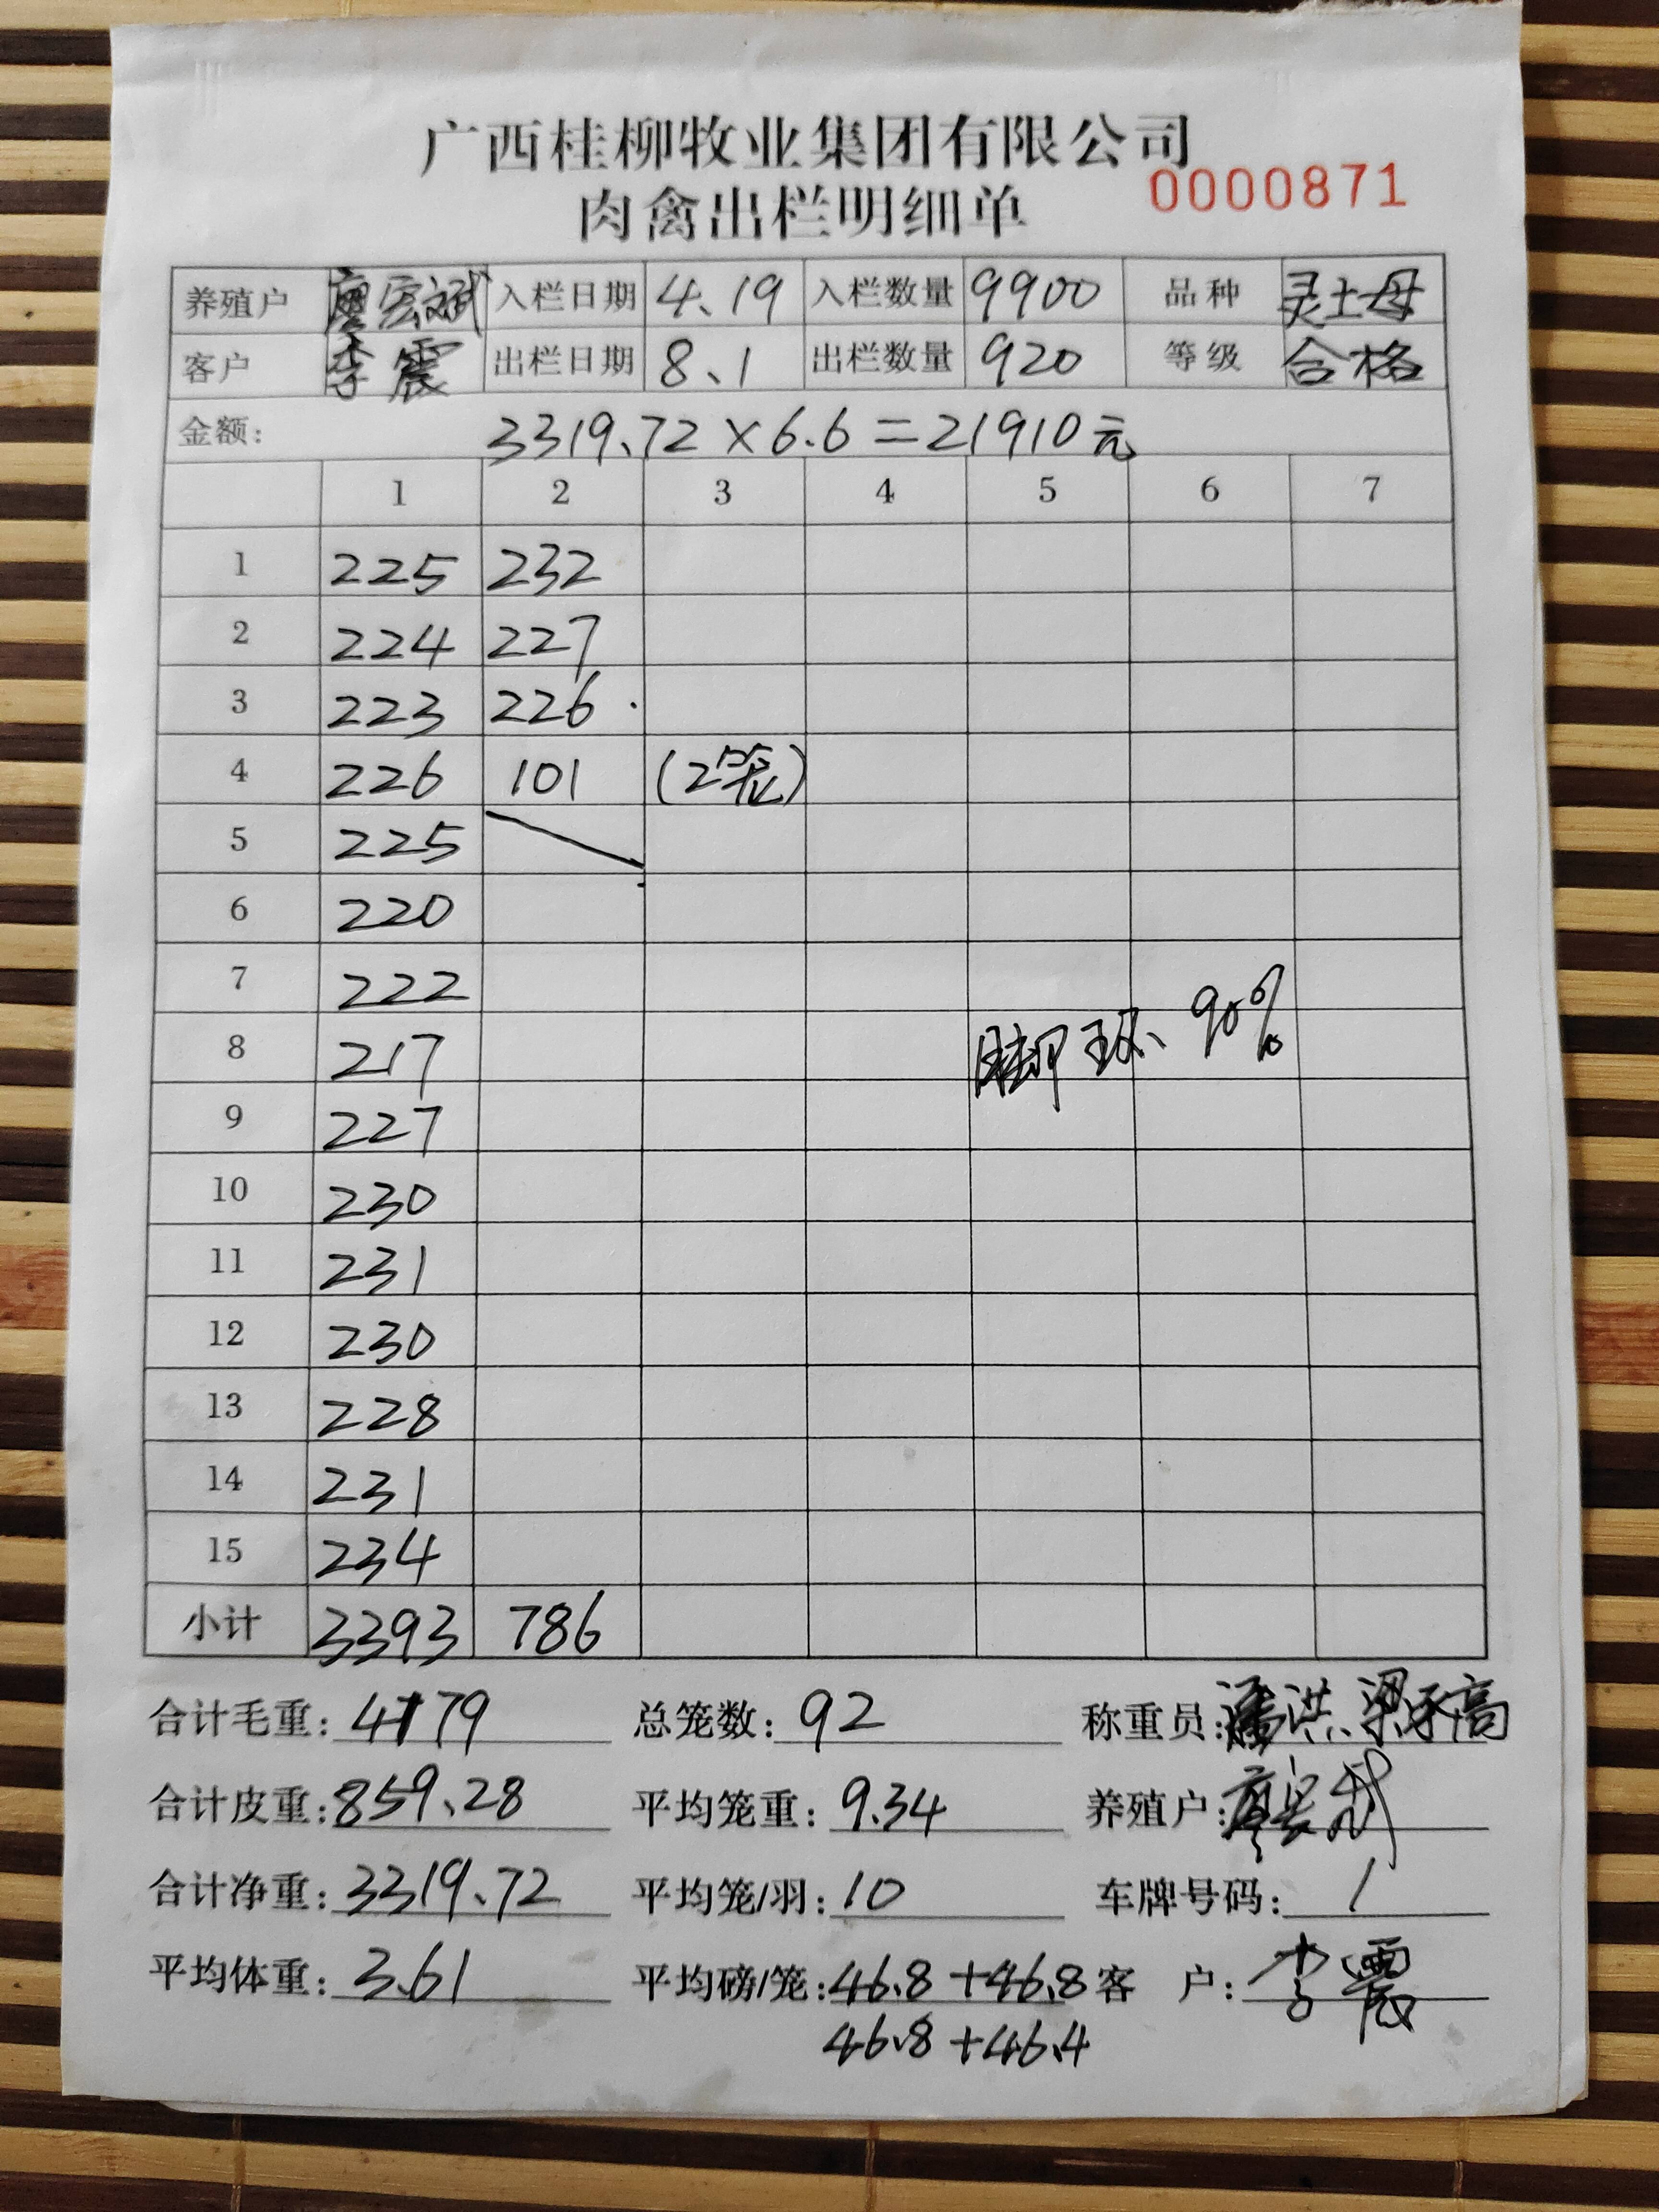 广西桂柳牧业集团有限公司
肉禽出栏明细单 0000871
养殖户 廖宏斌 入栏日期 4、19 入栏数量 9900 品种 灵土母
客户 李震 出栏日期 8、1 出栏数量 920 等级 合格
金额: 3319、72×6.6=21910元
1 2 3 4 5 6 7
1 225 232
2 224 227
3 223 226
4 226 101 (2笼)
5 225
6 220
7 222
8 217 脚环、90%
9 227
10 230
11 231
12 230
13 228
14 231
15 234
小计 3393 786
合计毛重: 4179 总笼数: 92 称重员: 潘洪、梁承高
合计皮重: 859、28 平均笼重: 9.34 养殖户: 廖宏斌
合计净重: 3319、72 平均笼/羽: 10 车牌号码: 1
平均体重: 3.61 平均磅/笼: 46.8+46.8 客 户: 李震
46.8+46.4